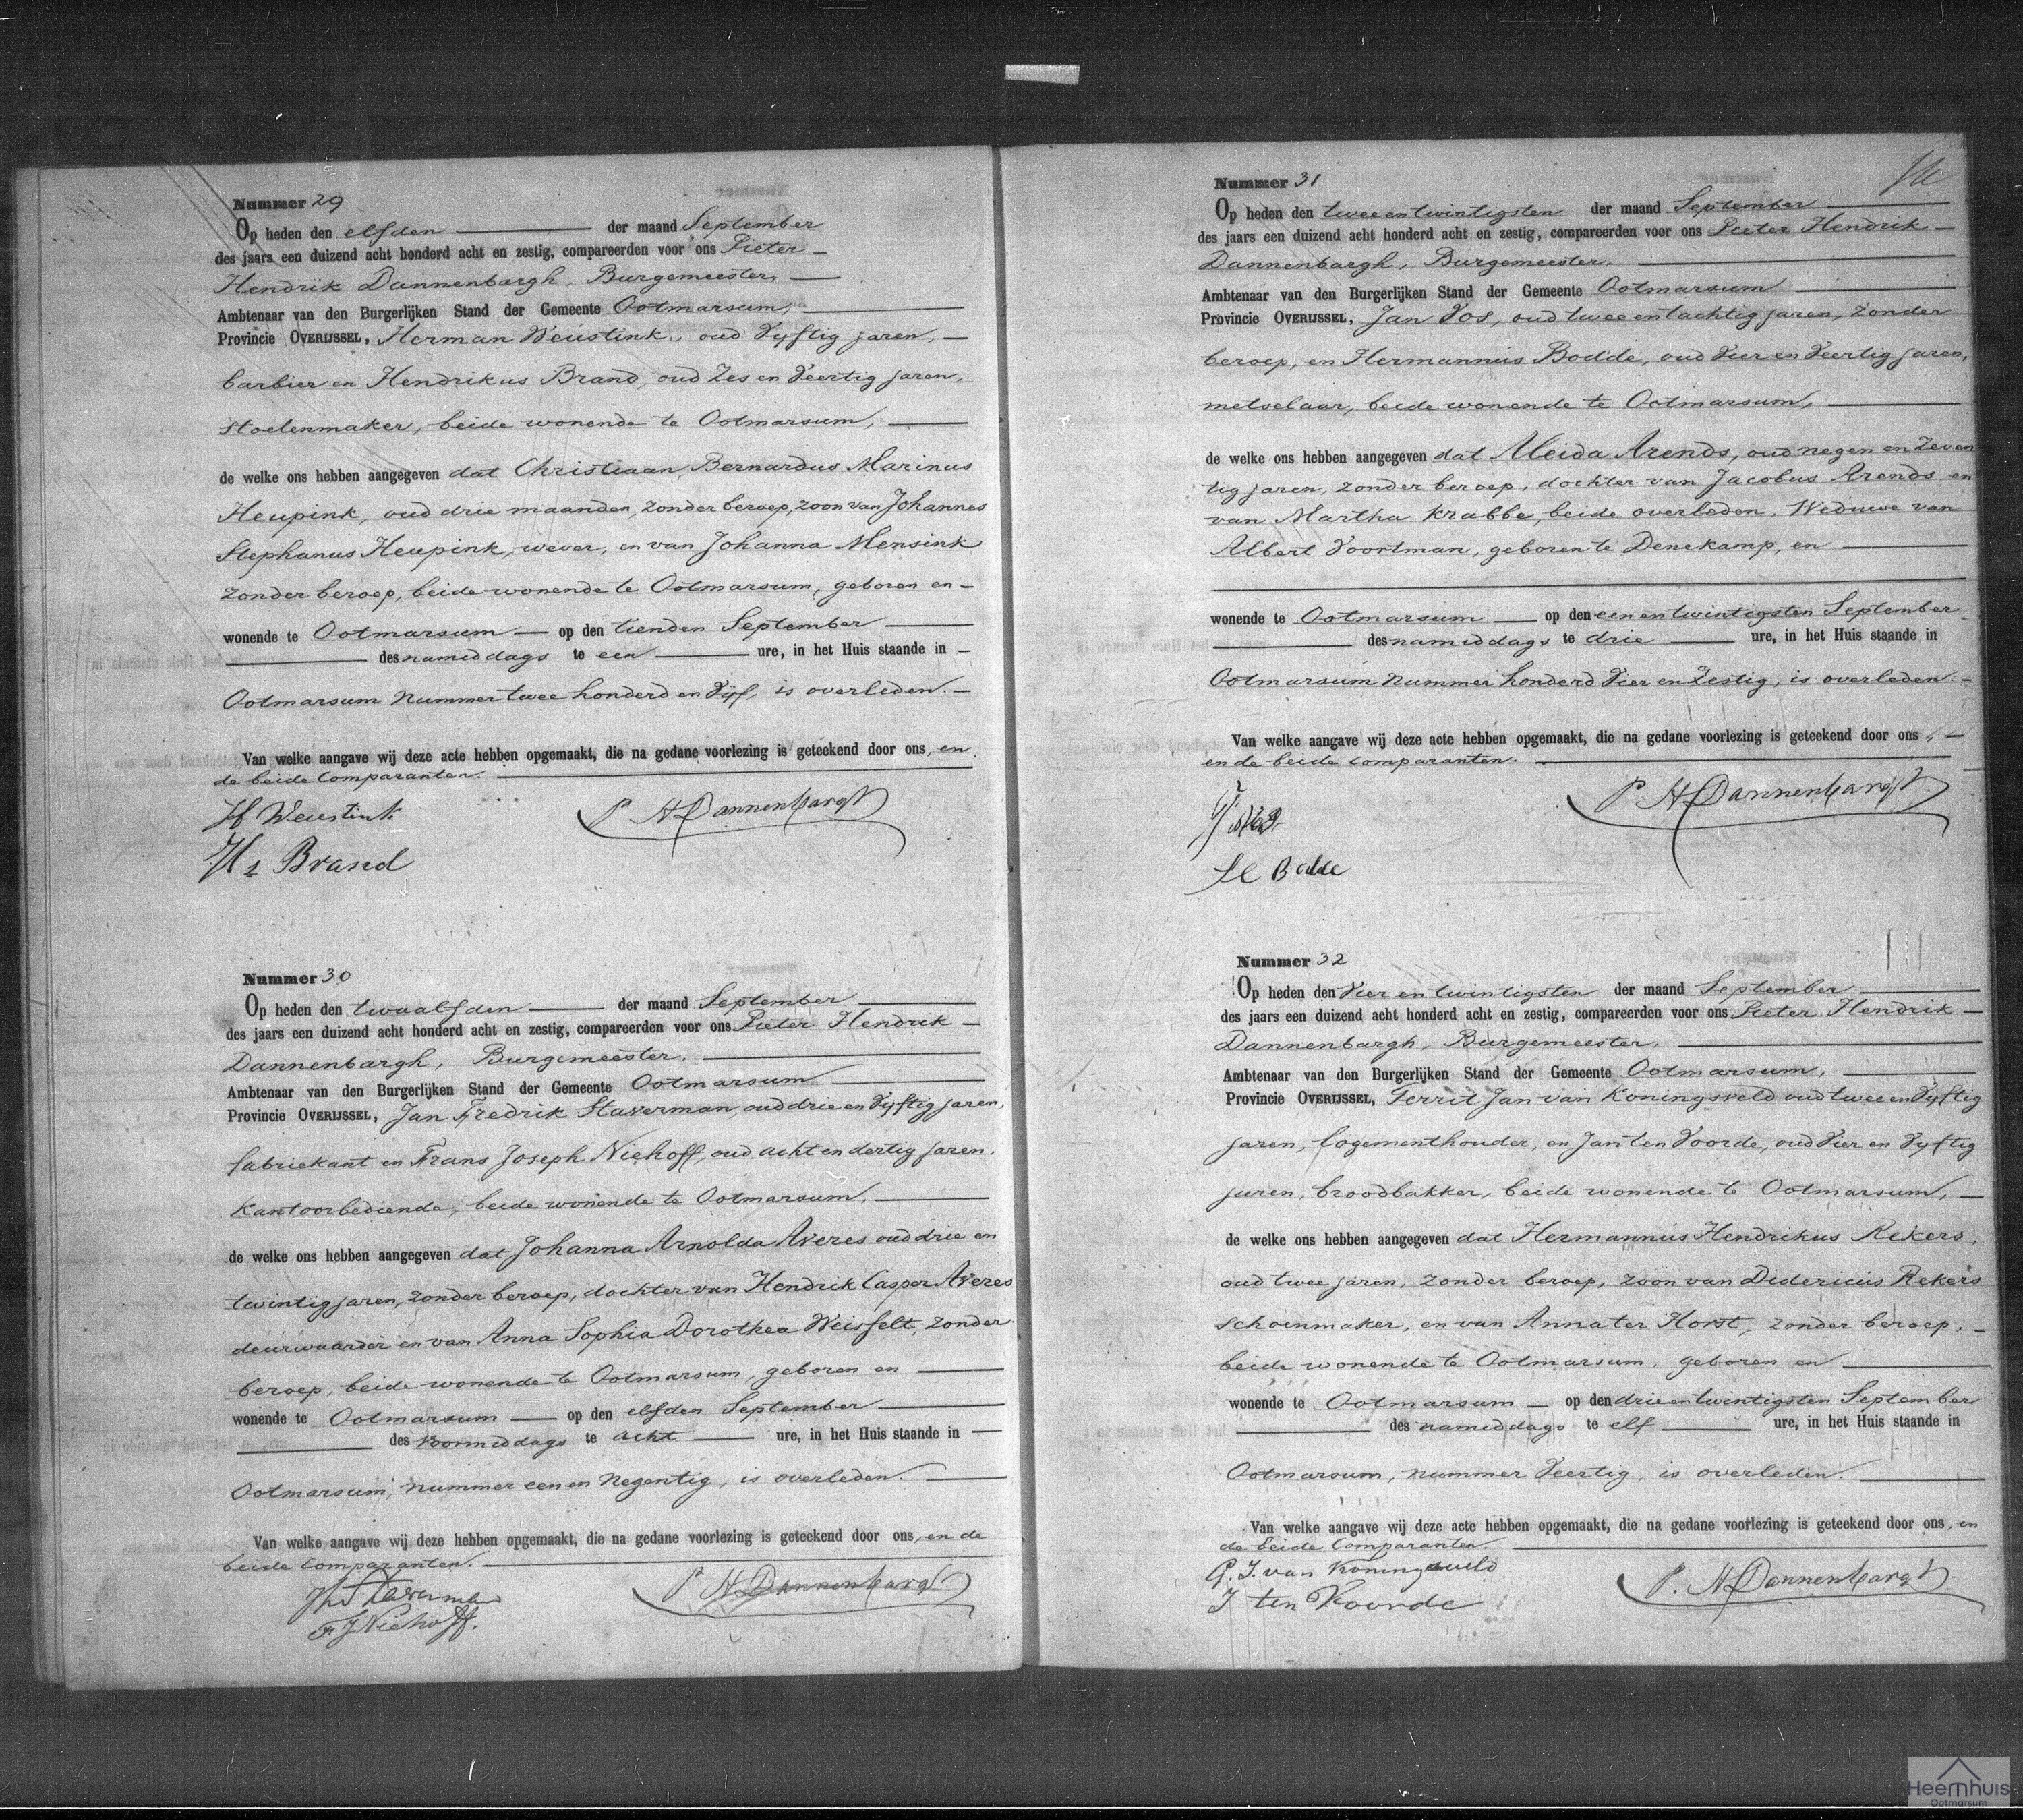 Nummer 29
Op heden den elfden der maand September
des jaars een duizend acht honderd acht en zestig, compareerden voor ons Pieter
Hendrik Dannenbargh, Burgemeester,
Ambtenaar van den Burgerlijken Stand der Gemeente Ootmarsum,
Provincie OVERIJSSEL, Herman Weustink, oud Vyftig jaren,
barbier en Hendrikus Brand, oud Zes en Veertig jaren,
stoelenmaker, beide wonende te Ootmarsum,
de welke ons hebben aangegeven dat Christiaan Bernardus Marinus
Heupink, oud drie maanden, zonder beroep, zoon van Johannes
Stephanus Heupink, wever, en van Johanna Mensink
zonder beroep, beide wonende te Ootmarsum, geboren en
wonende te Ootmarsum op den tienden September
des namiddags te een ure, in het Huis staande in
Ootmarsum nummer twee honderd en Vijf, is overleden.
Van welke aangave wij deze acte hebben opgemaakt, die na gedane voorlezing is geteekend door ons, en
de beide Comparanten.
H Weustink
P H Dannenbargh
Hs Brand
Nummer 30
Op heden den twaalfden der maand September
des jaars een duizend acht honderd acht en zestig, compareerden voor ons Pieter Hendrik
Dannenbargh, Burgemeester,
Ambtenaar van den Burgerlijken Stand der Gemeente Ootmarsum
Provincie OVERIJSSEL, Jan Fredrik Staverman, oud drie en Vyftig jaren,
fabriekant en Frans Joseph Niehoff, oud acht en dertig jaren,
Kantoorbediende, beide wonende te Ootmarsum,
de welke ons hebben aangegeven dat Johanna Arnolda Averes oud drie en
twintig jaren, zonder beroep, dochter van Hendrik Casper Averes
deurwaarder en van Anna Sophia Dorothea Weisfelt, zonder
beroep, beide wonende te Ootmarsum, geboren en
wonende te Ootmarsum op den elfden September
des voormiddags te acht ure, in het Huis staande in
Ootmarsum, nummer een en Negentig, is overleden.
Van welke aangave wij deze hebben opgemaakt, die na gedane voorlezing is geteekend door ons, en de
beide Comparanten.
P H Dannenbargh
F J Niehoff.
Nummer 31
Op heden den twee en twintigsten der maand September
des jaars een duizend acht honderd acht en zestig, compareerden voor ons Pieter Hendrik
Dannenbargh, Burgemeester,
Ambtenaar van den Burgerlijken Stand der Gemeente Ootmarsum
Provincie OVERIJSSEL, Jan Vos, oud twee en tachtig jaren, zonder
beroep, en Hermannus Bodde, oud Vier en Veertig jaren,
metselaar, beide wonende te Ootmarsum,
de welke ons hebben aangegeven dat Aleida Arends, oud negen en Zeven
tig jaren, zonder beroep, dochter van Jacobus Arends en
van Martha Krabbe, beide overleden, Weduwe van
Albert Voortman, geboren te Denekamp, en
wonende te Ootmarsum op den een en twintigsten September
des namiddags te drie ure, in het Huis staande in
Ootmarsum nummer honderd Vier en Zestig, is overleden.
Van welke aangave wij deze acte hebben opgemaakt, die na gedane voorlezing is geteekend door ons,
en de beide Comparanten.
P H Dannenbargh
H Bodde
Nummer 32
Op heden den Vier en twintigsten der maand September
des jaars een duizend acht honderd acht en zestig, compareerden voor ons Pieter Hendrik
Dannenbargh, Burgemeester,
Ambtenaar van den Burgerlijken Stand der Gemeente Ootmarsum,
Provincie OVERIJSSEL, Gerrit Jan van Koningsveld oud twee en Vyftig
jaren, logementhouder, en Jan ten Voorde, oud Vier en Vyftig
jaren, broodbakker, beide wonende te Ootmarsum,
de welke ons hebben aangegeven dat Hermannus Hendrikus Rekers,
oud twee jaren, zonder beroep, zoon van Didericus Rekers
schoenmaker, en van Anna ter Horst, zonder beroep,
beide wonende te Ootmarsum, geboren en
wonende te Ootmarsum op den drie en twintigsten September
des namiddags te elf ure, in het Huis staande in
Ootmarsum, nummer Veertig, is overleden.
Van welke aangave wij deze acte hebben opgemaakt, die na gedane voorlezing is geteekend door ons, en
de beide Comparanten.
G. J. van Koningsveld
P. H Dannenbargh
J ten Voorde
Heemhuis
Ootmarsum